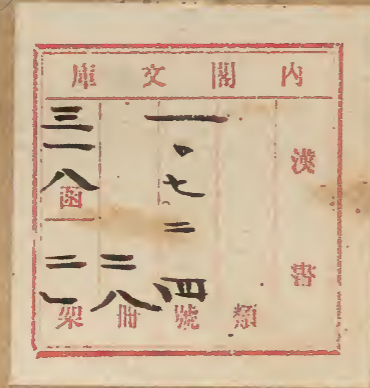 内閣文庫
漢書
類
一、七二四號
二八冊
三一八函
二一架